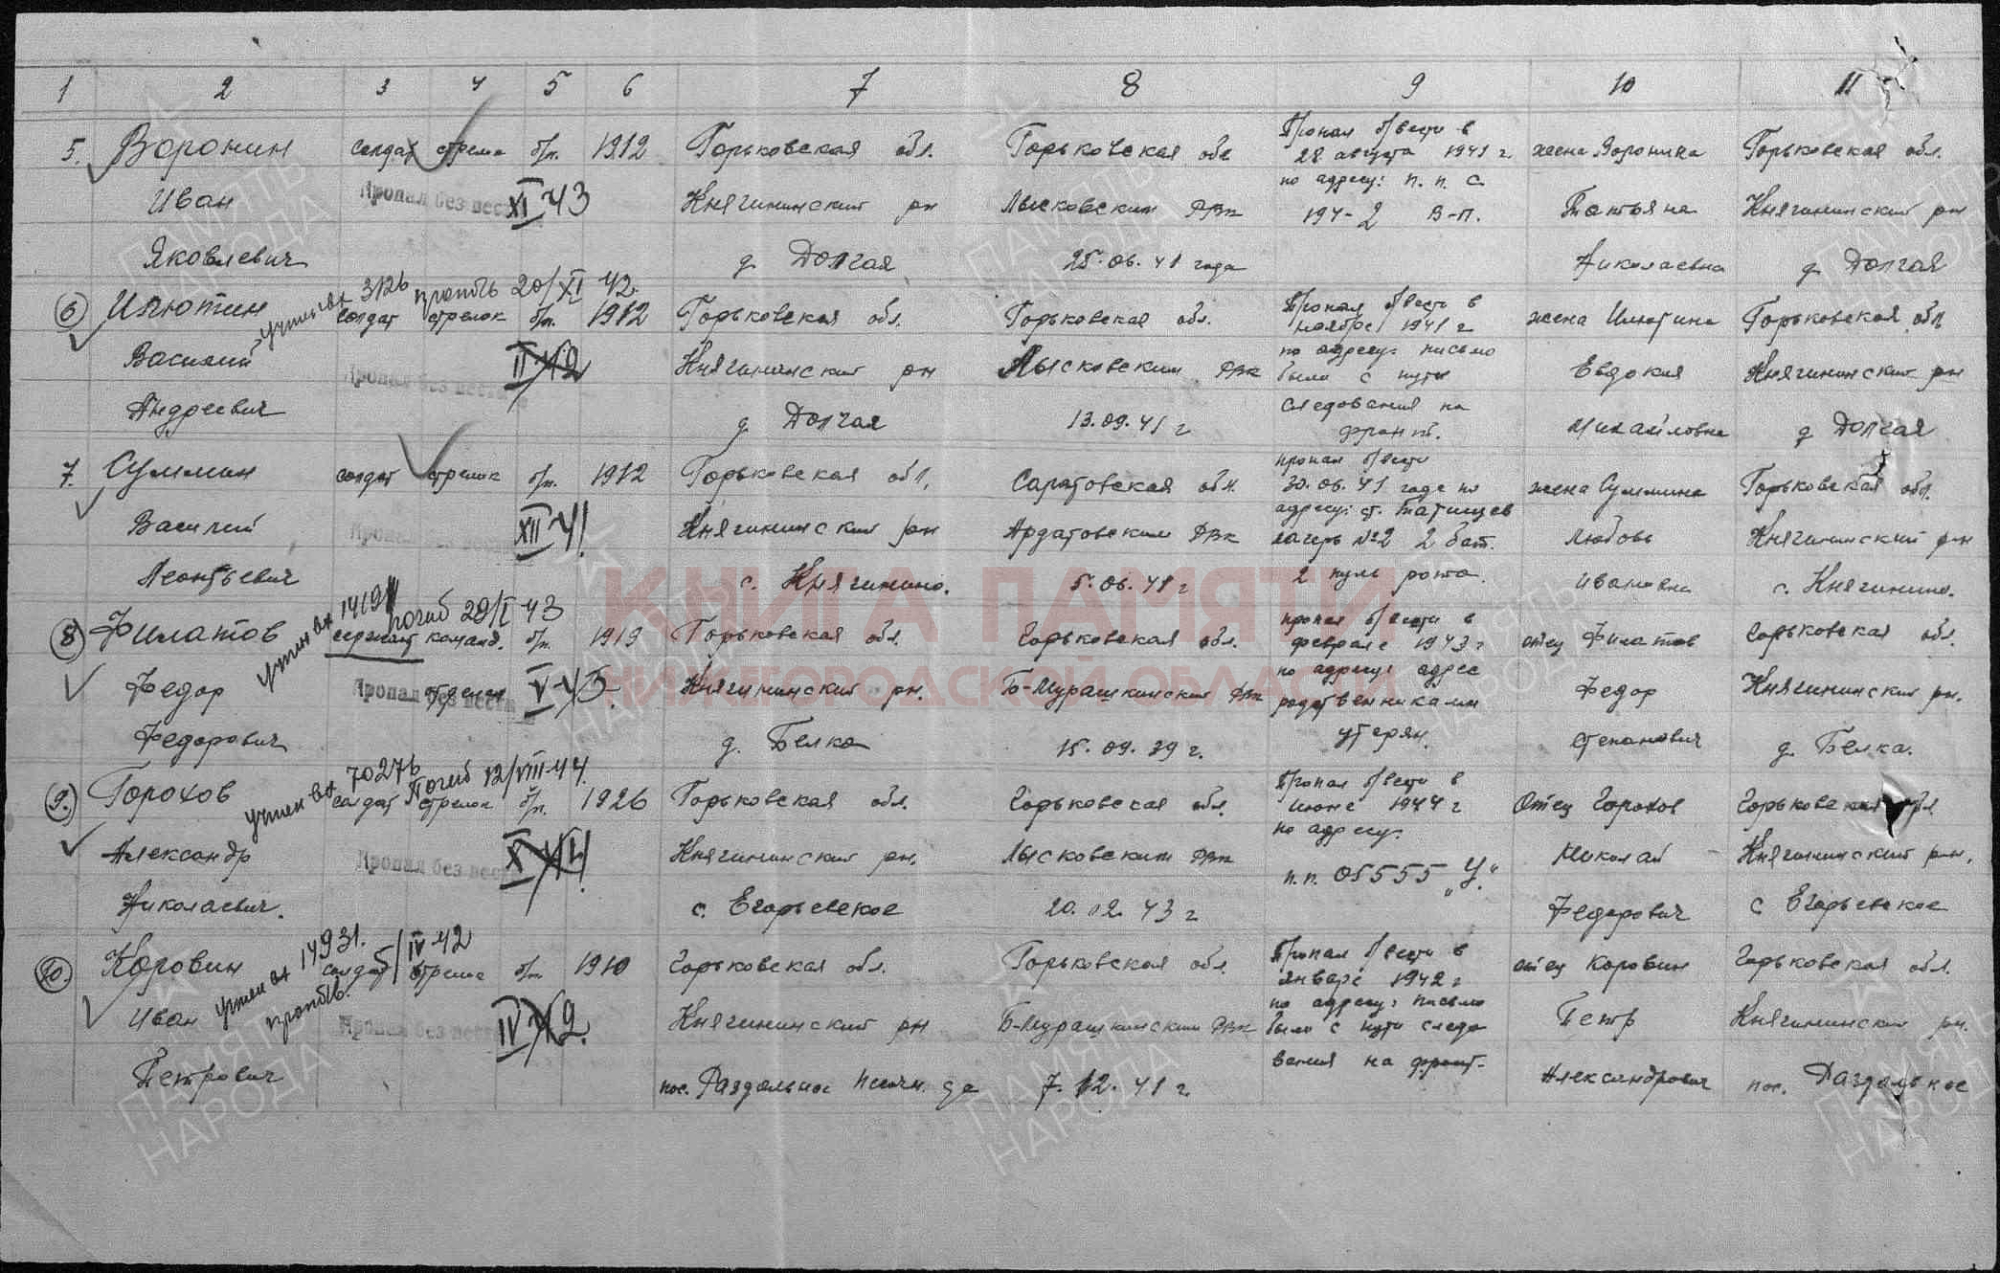 1 2 3 4 5 6 7 8 9 10 11
5. Воронин солдат стрелк б/п. 1912 Горьковская обл. Горьковская обл Пропал б/вести в жена Воронина Горьковская обл.
28 августа 1941 г.
Иван Пропал без вести XI-43 Княгининский рн Лысковским РВк по адресу: п. п. с. Татьяна Княгининский рн
194-2 В-П.
Яковлевич д. Долгая 25.06.41 года Николаевна д. Долгая
учтен вх 3126 20/XI 42
6 Илютин солдат стрелок б/п. 1912 Горьковская обл. Горьковская обл. Пропал б/вести в жена Илютина Горьковская обл
ноябре 1941 г
Василий Пропал без вести II-42 Княгининский рн Лысковским РВк по адресу: письмо Евдокия Княгининский рн
были с пути
Андреевич д. Долгая 13.09.41 г следования на Михайловна д Долгая
фронт.
7. Суммин солдат стрелок б/п. 1912 Горьковская обл. Саратовская обл. пропал б/вести жена Суммина Горьковская обл.
30.06.41 года по
Василий Пропал без вести XII-41 Княгининский рн Ардатовским РВк адресу: ст. Татищев Любовь Княгининский р-н
лагерь №2 2 бат.
Леонтьевич с. Княгинино. 5.06.41 г 2 пуль рота. Ивановна с. Княгинино.
учтен вх 1419 погиб 29/I 43
8 Филатов сержант команд. б/п. 1919 Горьковская обл. Горьковская обл. пропал б/вести в отец Филатов Горьковская обл.
феврале 1943 г
Федор Пропал без вести отделен V-43 Княгининский рн. Б-Мурашкинский РВк по адресу: адрес Федор Княгининский рн.
родственниками
Федорович д. Белка 15.09.39 г. утерян. Степанович д. Белка.
учтен вх 70276 Погиб 12/VIII-44
9. Горохов солдат стрелок б/п. 1926 Горьковская обл. Горьковская обл. Пропал б/вести в Отец Горохов Горьковская обл
июне 1944 г
Александр Пропал без вести X-44 Княгининский рн. Лысковским РВк по адресу: Николай Княгининский рн.
п.п. 05555 „У"
Николаевич. с. Егорьевское 20.12.43 г Федорович с Егорьевское
учтен вх 14931. 5/IV-42
10. Коровин солдат стрелк б/п 1910 Горьковская обл. Горьковская обл. Пропал б/вести в отец Коровин Горьковская обл.
январе 1942 г
Иван Пропал без вести IV-42. Княгининский рн Б-Мурашкинским РВк по адресу: письмо Петр Княгининский рн.
были с пути следо
Петрович пос. Раздольное 7.12.41 г. вания на фронт. Александрович пос. Раздольное
КНИГА ПАМЯТИ
НИЖЕГОРОДСКОЙ ОБЛАСТИ
ПАМЯТЬ НАРОДА